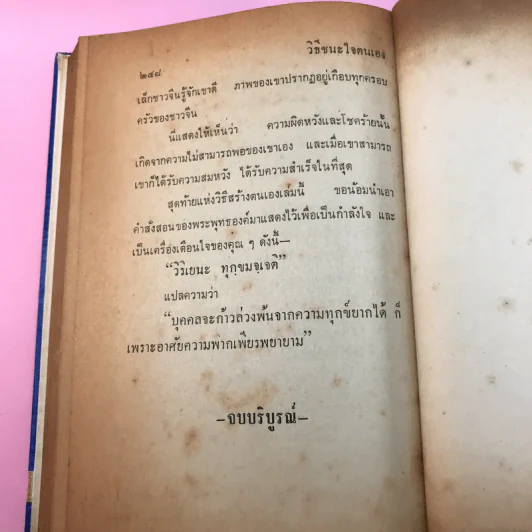 ๒๔๘ วิธีชนะใจตนเอง
เล็กชาวจีนรู้จักเขาดี ภาพของเขาปรากฏอยู่เกือบทุกครอบ
ครัวของชาวจีน
นี่แสดงให้เห็นว่า ความผิดหวังและโชคร้ายนั้น
เกิดจากความไม่สามารถพอของเขาเอง และเมื่อเขาสามารถ
เขาก็ได้รับความสมหวัง ได้รับความสำเร็จในที่สุด
สุดท้ายแห่งวิธีสร้างตนเองเล่มนี้ ขอน้อมนำเอา
คำสั่งสอนของพระพุทธองค์มาแสดงไว้เพื่อเป็นกำลังใจ และ
เป็นเครื่องเตือนใจของคุณ ๆ ดังนี้—
“วิริเยนะ ทุกฺขมจฺเจติ”
แปลความว่า
“บุคคลจะก้าวล่วงพ้นจากความทุกข์ยากได้ ก็
เพราะอาศัยความพากเพียรพยายาม”
—จบบริบูรณ์—